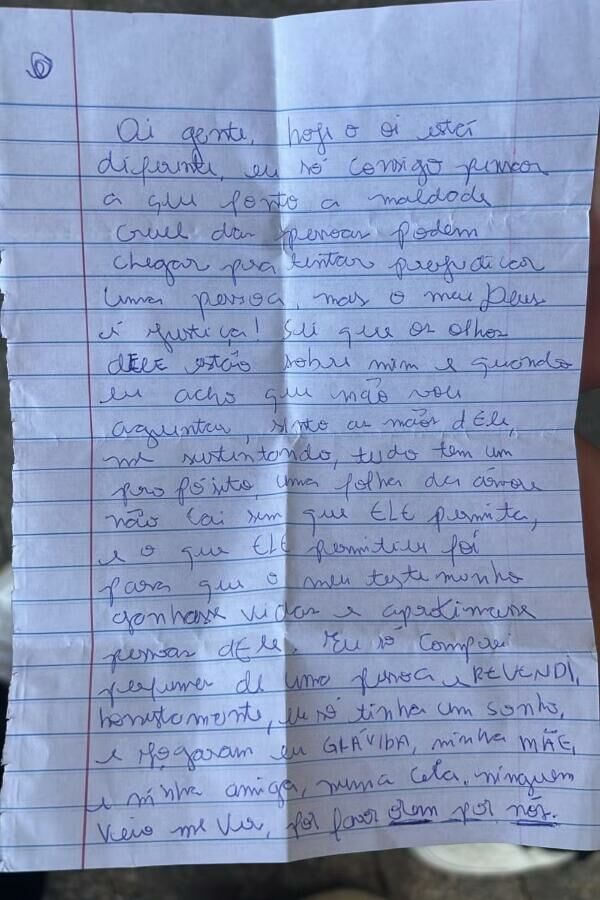 6
Oi gente, hoje o oi está
diferente, eu só consigo pensar
a que ponto a maldade
cruel das pessoas podem
chegar pra tentar prejudicar
uma pessoa, mas o meu Deus
é justiça! Sei que os olhos
dELE estão sobre mim e quando
eu acho que não vou
aguentar, sinto as mãos dEle,
me sustentando, tudo tem um
propósito, uma folha da árvore
não cai sem que ELE permita,
e o que ELE permitiu foi
para que o meu testemunho
ganhasse vidas e aproximasse
pessoas dEle. Eu só comprei
perfumes de uma pessoa e REVENDI,
honestamente, eu só tinha um sonho,
e jogaram eu GRÁVIDA, minha MÃE,
e minha amiga, numa cela, ninguém
veio me ver, por favor orem por nós.